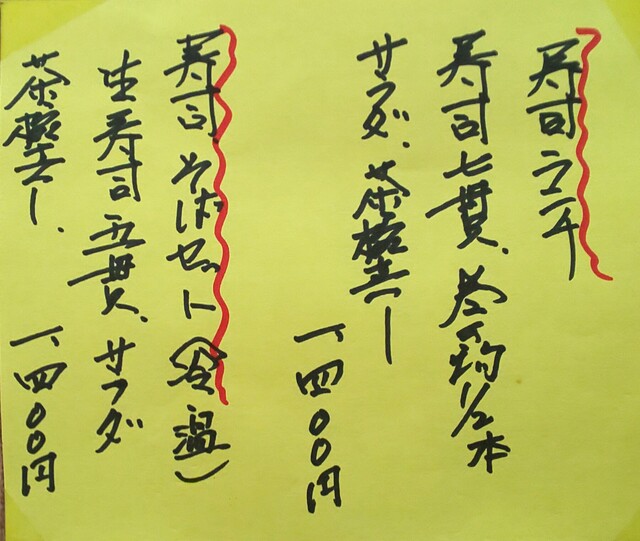 寿司ランチ
寿司七貫、巻物1/2本
サラダ、茶椀ムシ
一、四〇〇円
寿司そばセット（冷温）
生寿司五貫、サラダ
茶椀ムシ、
一、四〇〇円